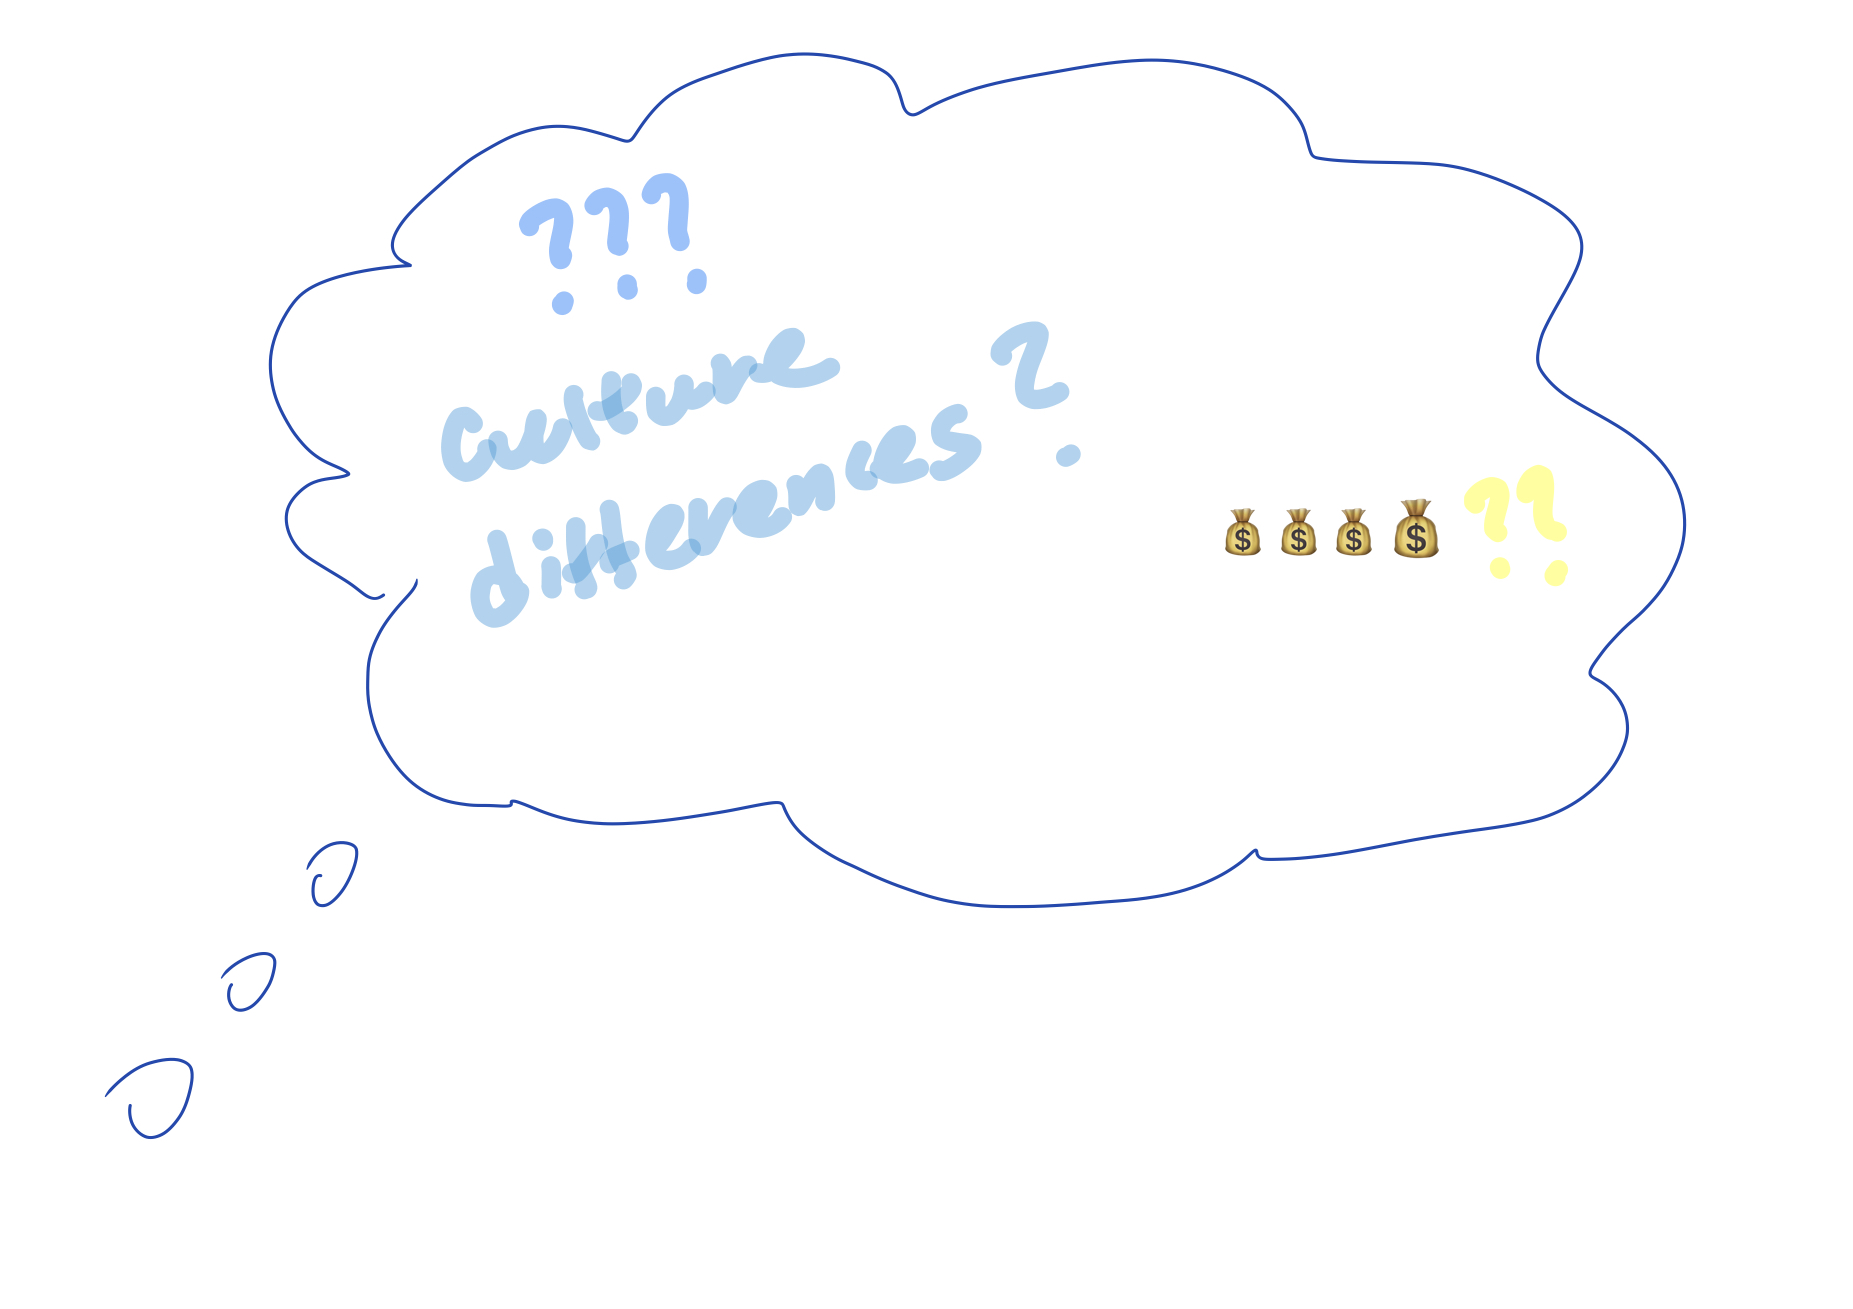 ???
Culture
differences ?
💰💰💰💰??